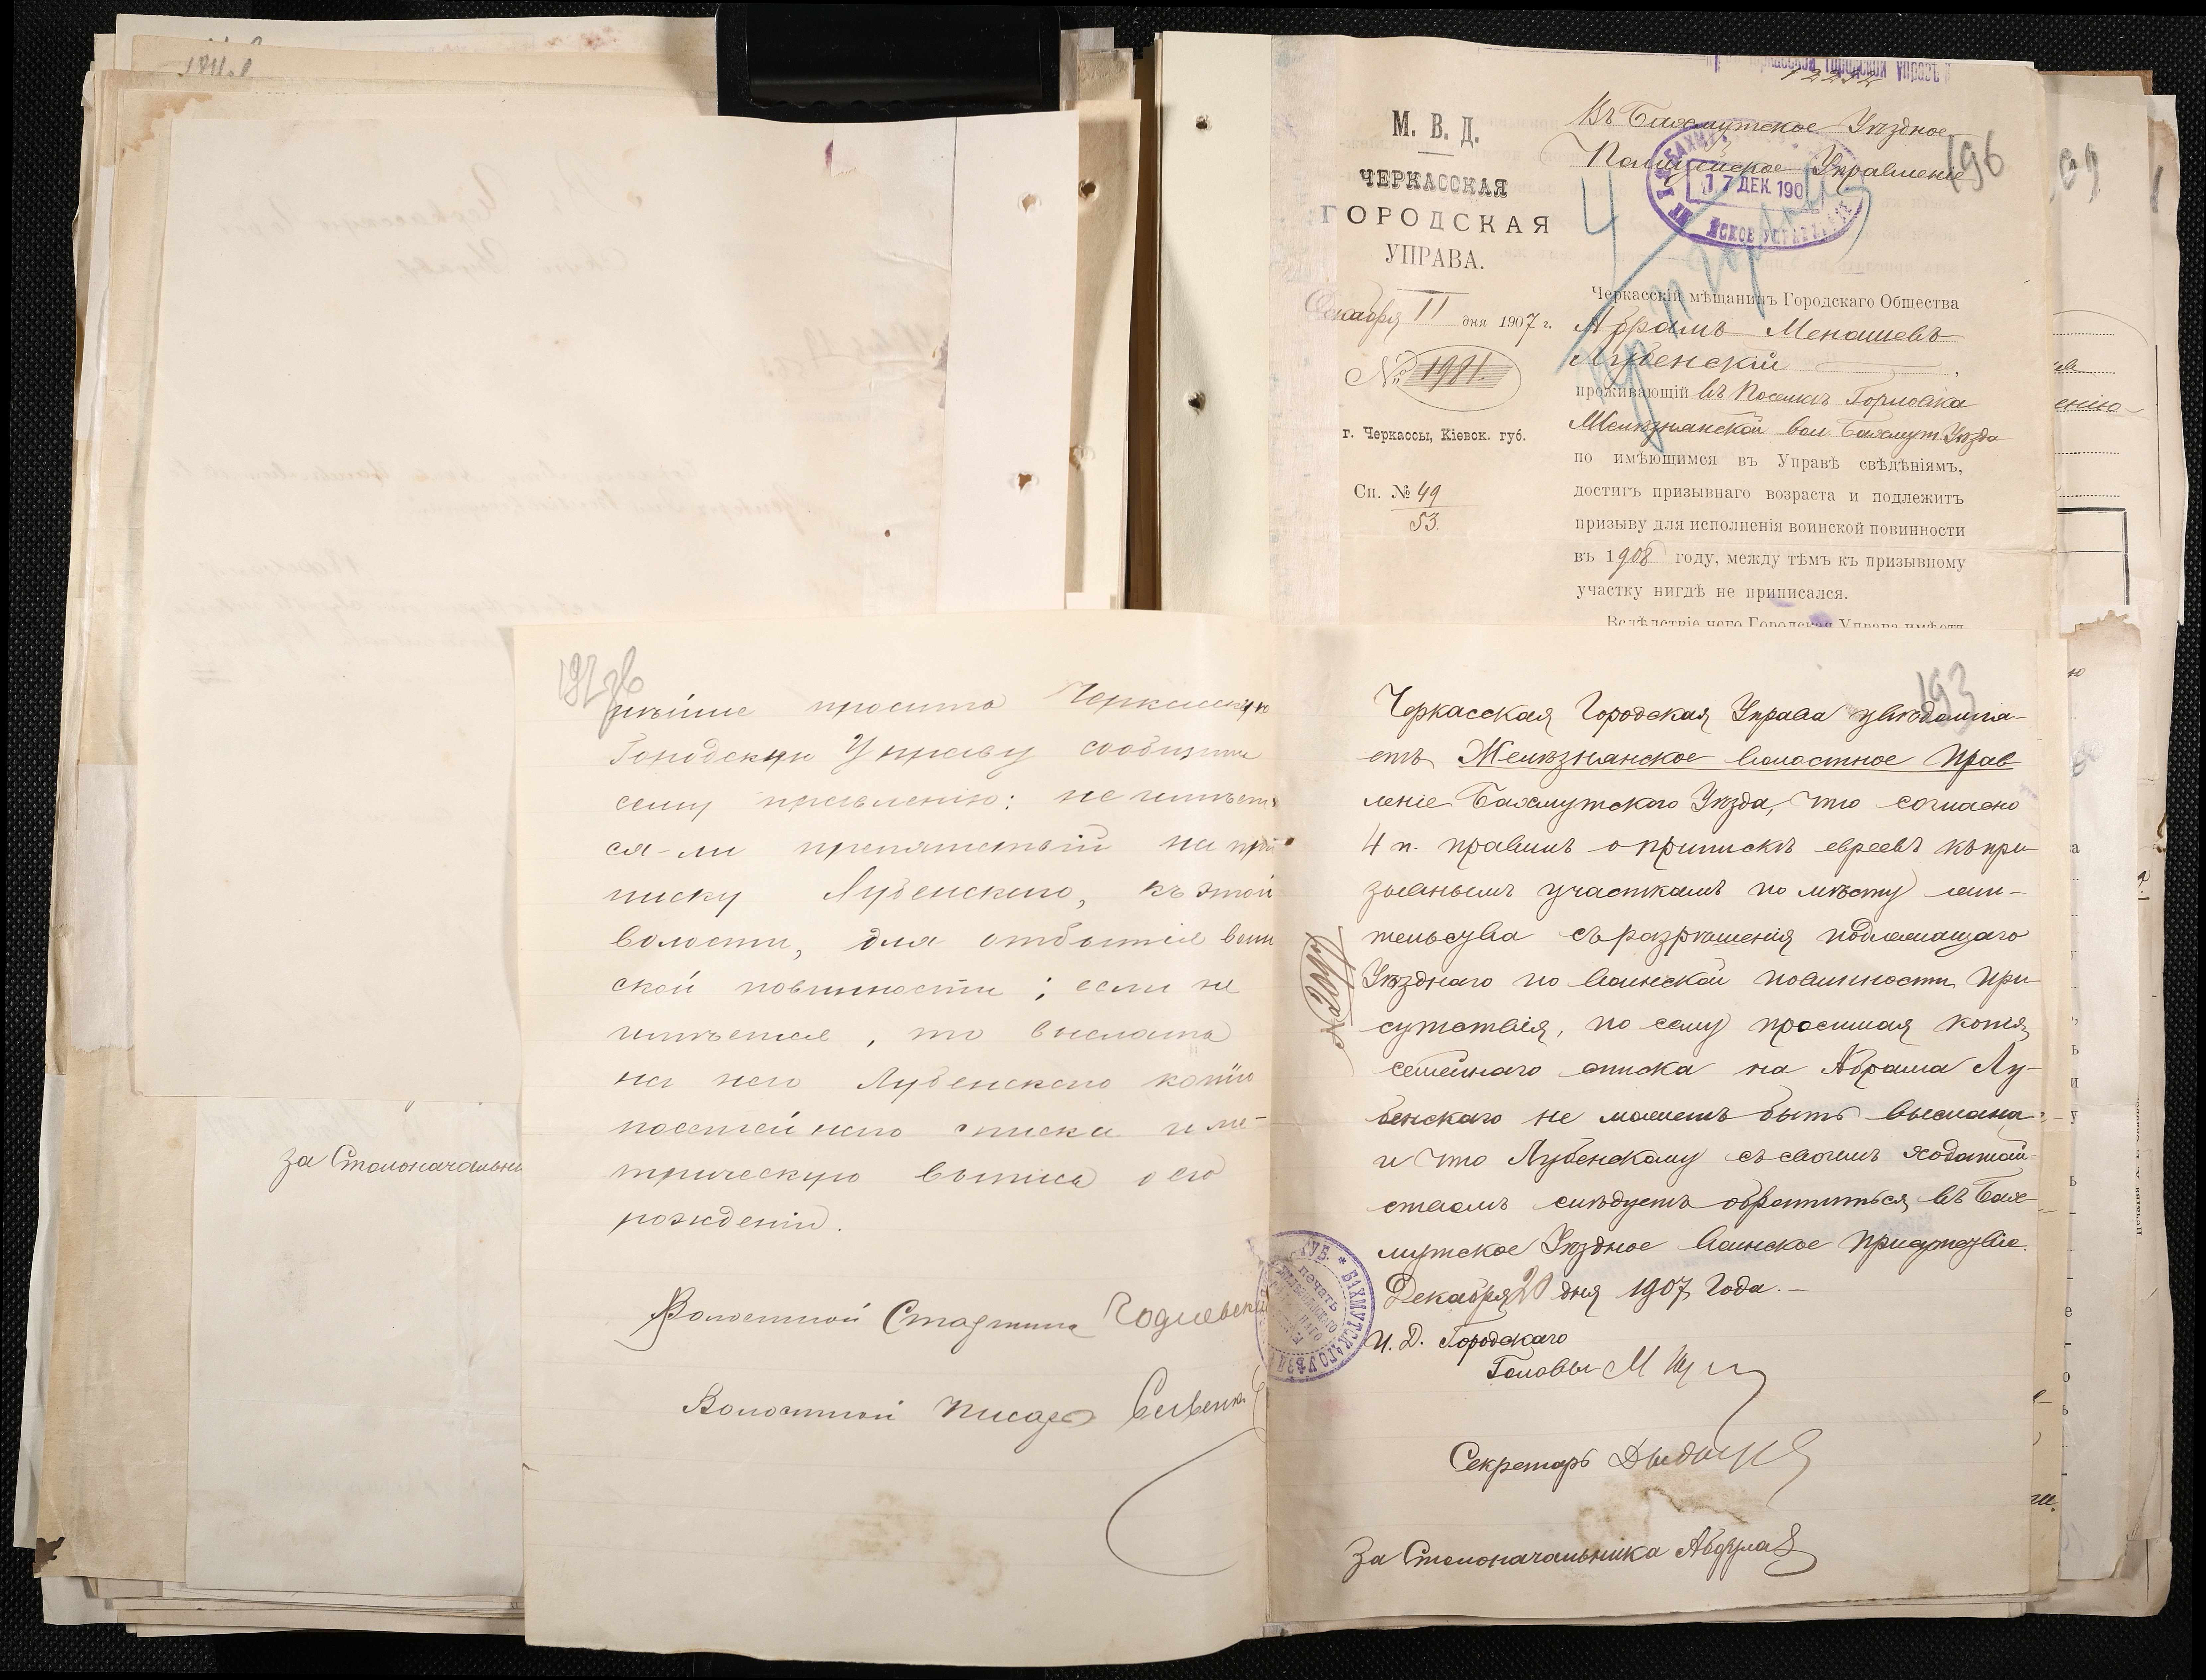 М. В. Д.
ЧЕРКАССКАЯ
ГОРОДСКАЯ
УПРАВА.
Декабря 11 дня 1907 г.
№ 1981.
г. Черкассы, Кіевск. губ.
Сп. № 49
53.
Въ Бахмутское Уѣздное
Полицейское Управленіе
196
17 ДЕК. 190
Черкасскій мѣщанинъ Городскаго Общества
Абрамъ Менашевъ
Лубенскій
проживающій въ Поселкѣ Горловка
Желѣзнянской вол. Бахмут. Уѣзда
по имѣющимся въ Управѣ свѣдѣніямъ,
достигъ призывнаго возраста и подлежитъ
призыву для исполненія воинской повинности
въ 1908 году, между тѣмъ къ призывному
участку нигдѣ не приписался.
Вслѣдствіе чего Городская Управа имѣетъ
нѣйше проситъ Черкасскую
Городскую Управу сообщить
сему правленію: не имѣет
ся-ли препятствій на при
писку Лубенскаго, къ этой
волости, для отбытія воин
ской повинности; если не
имѣется, то выслать
на него Лубенскаго копію
посемейнаго списка и ме-
трическую выпись о его
рожденіи.
Волостной Старшина
Волостной Писарь
за Столоначальни
193
Черкасская Городская Управа увѣдомля-
етъ Желѣзнянское Волостное Прав
леніе Бахмутскаго Уѣзда, что согласно
4 п. правилъ о припискѣ евреевъ къ при
зывнымъ участкамъ по мѣсту жи-
тельсува съ разрѣшенія подлежащаго
Уѣзднаго по воинской повинности При-
сутствія, по сему просимая копія
семейнаго списка на Абрама Лу-
бенскаго не можетъ быть выслана
и что Лубенскому съ своимъ ходатай-
ствомъ слѣдуетъ обратиться въ Бах-
мутское Уѣздное Воинское Присутствіе.
Декабря 20 дня 1907 Года.-
И. Д. Городскаго
Головы
Секретарь
За Столоначальника
ГУБ. * БАХМУТСКАГО УѢЗ
ПЕЧАТЬ